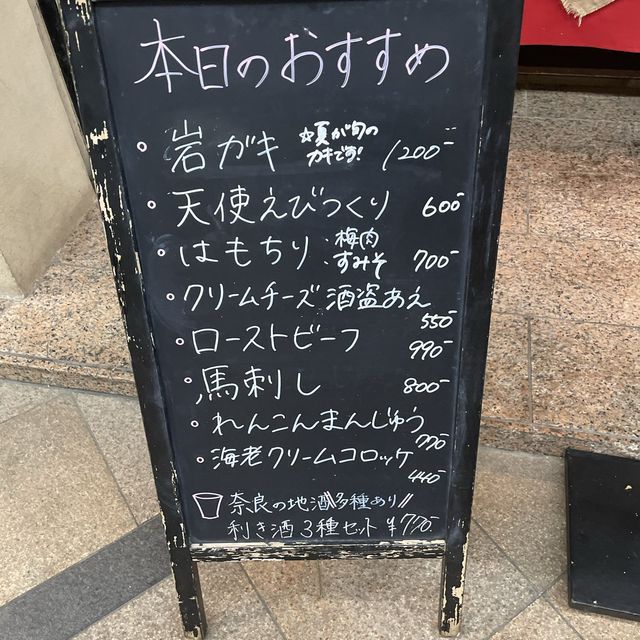 本日のおすすめ
岩ガキ ☆夏が旬のカキです! 1200-
天使えびつくり 600-
はもちり 梅肉 すみそ 700-
クリームチーズ酒盗あえ 550-
ローストビーフ 990-
馬刺し 800-
れんこんまんじゅう 770-
海老クリームコロッケ 440-
奈良の地酒多種あり
利き酒3種セット ¥770-